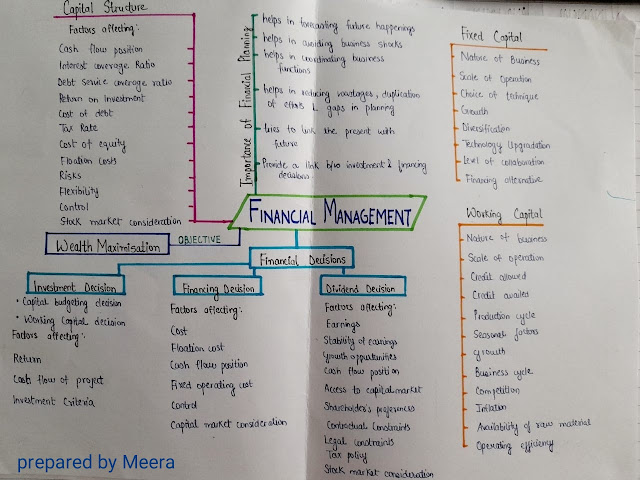 Capital Structure
Factors affecting:
Cash flow position
Interest coverage Ratio
Debt service coverage ratio
Return on Investment
Cost of debt
Tax Rate
Cost of equity
Floation costs
Risks
Flexibility
Control
Stock market consideration
Importance of Financial Planning
helps in forecasting future happenings
helps in avoiding business shocks
helps in coordinating business
functions
helps in reducing wastages, duplication
of efforts & gaps in planning
tries to link the present with
future
Provide a link b/w investment & financing
decisions.
Fixed Capital
Nature of Business
Scale of Operation
Choice of technique
Growth
Diversification
Technology Upgradation
Level of collaboration
Financing alternative
FINANCIAL MANAGEMENT
Wealth Maximisation
OBJECTIVE
Financial Decisions
Investment Decision
• Capital budgeting decision
• Working Capital decision
Factors affecting:
Return
Cash flow of project
Investment Criteria
Financing Decision
Factors affecting:
Cost
Floation cost
Cash flow position
Fixed operating cost
Control
Capital market consideration
Dividend Decision
Factors affecting:
Earnings
Stability of earnings
Growth opportunities
Cash flow position
Access to capital market
Shareholder's preferences
Contractual Constraints
Legal constraints
Tax policy
Stock market consideration
Working Capital
Nature of business
Scale of operation
Credit allowed
Credit availed
Production cycle
Seasonal factors
growth
Business cycle
Competition
Inflation
Availability of raw material
Operating efficiency
prepared by Meera